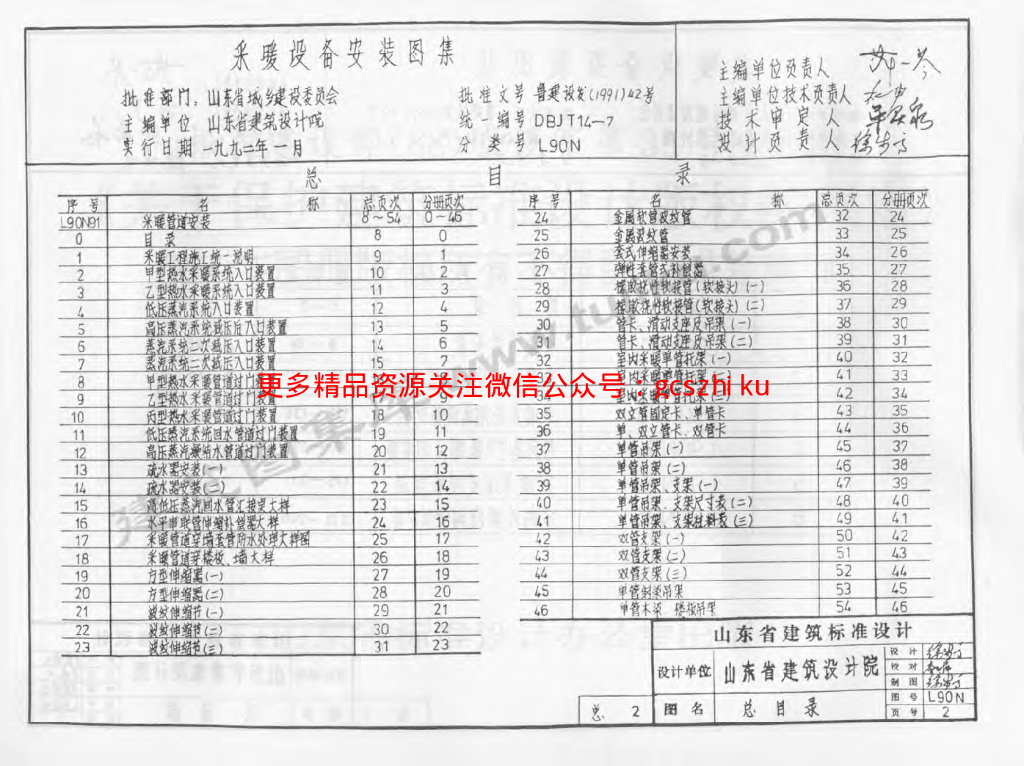 采暖设备安装图集
批准部门，山东省城乡建设委员会
主编单位 山东省建筑设计院
实行日期 一九九二年一月
批准文号 鲁建设发(1991)42号
统一编号 DBJT14-7
分类号 L90N
主编单位负责人
主编单位技术负责人
技术审定人
设计负责人
总 目 录
序号 名称 总页次 分册页次
L90N91 采暖管道安装 8~54 0~46
0 目录 8 0
1 采暖工程施工统一说明 9 1
2 甲型热水采暖系统入口装置 10 2
3 乙型热水采暖系统入口装置 11 3
4 低压蒸汽系统入口装置 12 4
5 高压蒸汽系统减压后入口装置 13 5
6 蒸汽系统二次减压入口装置 14 6
7 蒸汽系统二次减压入口装置 15 7
8 甲型热水采暖管道过门装置
9 乙型热水采暖管道过门装置 9
10 丙型热水采暖管道过门装置 18 10
11 低压蒸汽系统回水管道过门装置 19 11
12 高压蒸汽凝结水管道过门装置 20 12
13 疏水器安装(一) 21 13
14 疏水器安装(二) 22 14
15 高低压蒸汽回水管汇接定大样 23 15
16 水平串联管伸缩补偿器大样 24 16
17 采暖管道穿墙套管防水处理大样图 25 17
18 采暖管道穿楼板、墙大样 26 18
19 方型伸缩器(一) 27 19
20 方型伸缩器(二) 28 20
21 波纹伸缩节(一) 29 21
22 波纹伸缩节(二) 30 22
23 波纹伸缩节(三) 31 23
序号 名称 总页次 分册页次
24 金属软管波纹管 32 24
25 金属波纹管 33 25
26 套式伸缩器安装 34 26
27 弹性套管式补偿器 35 27
28 橡胶挠性软接管(软接头)(一) 36 28
29 橡胶挠性软接管(软接头)(二) 37 29
30 管卡、滑动支座及吊架(一) 38 30
31 管卡、滑动支座及吊架(二) 39 31
32 室内采暖单管托架(一) 40 32
33 室内采暖单管托架(二) 41 33
34 室内采暖单管托架(三) 42 34
35 双立管固定卡、单管卡 43 35
36 单、双立管卡、双管卡 44 36
37 单管吊架(一) 45 37
38 单管吊架(二) 46 38
39 单管吊架、支架(一) 47 39
40 单管吊架、支架尺寸表(二) 48 40
41 单管吊架、支架材料表(三) 49 41
42 双管支架(一) 50 42
43 双管支架(二) 51 43
44 双管支架(三) 52 44
45 单管钢梁吊架 53 45
46 单管木梁 楼板吊架 54 46
更多精品资源关注微信公众号：gcszhi ku
山东省建筑标准设计
设计单位 山东省建筑设计院
设计
校对
制图
图号 L90N
总 2 图名 总目录 页号 2